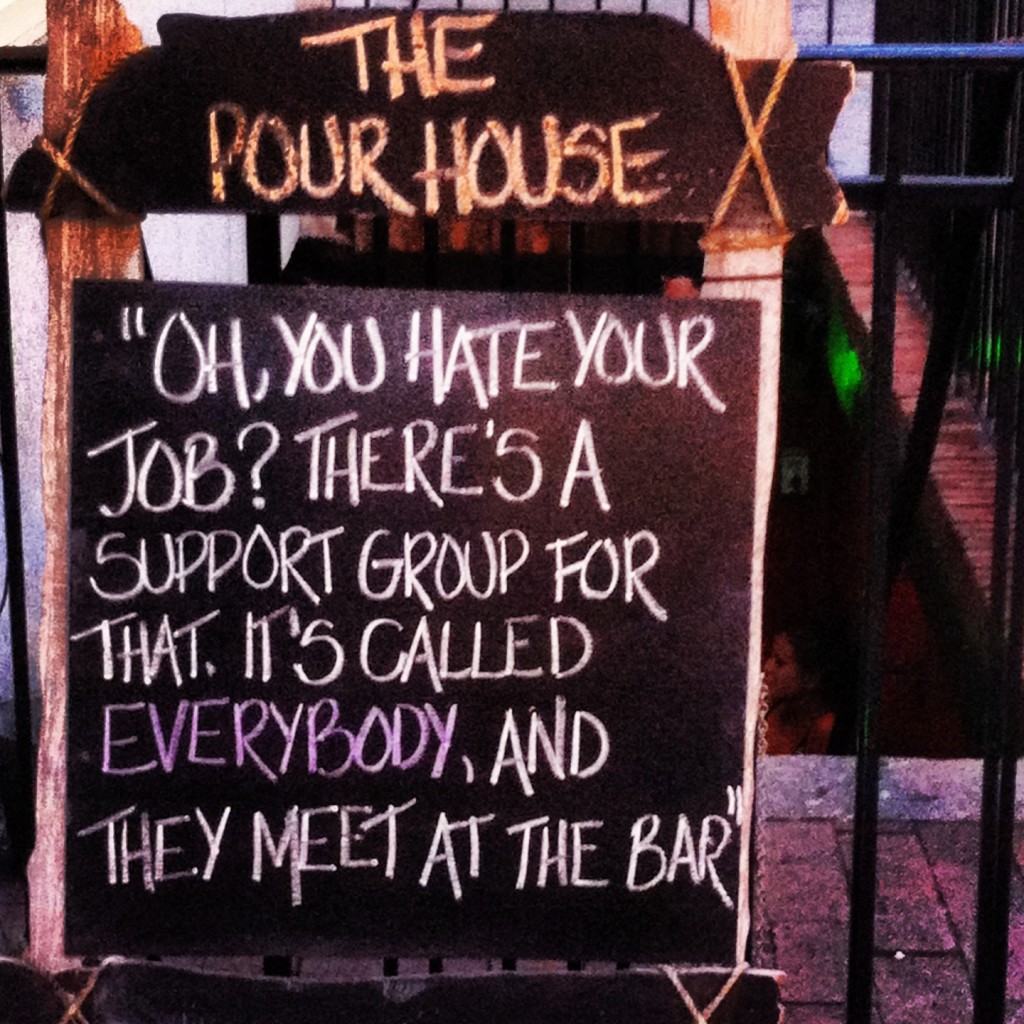 THE
POUR HOUSE
"OH, YOU HATE YOUR
JOB? THERE'S A
SUPPORT GROUP FOR
THAT. IT'S CALLED
EVERYBODY, AND
THEY MEET AT THE BAR"